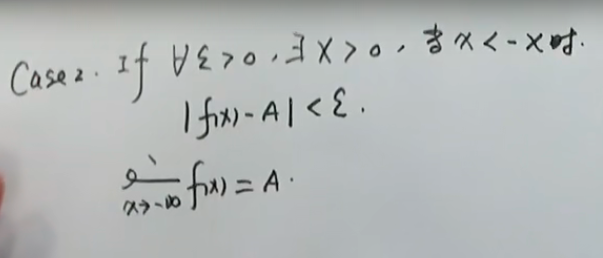 Case 2. If ∀ε>0, ∃X>0, 当x<-X时.
|f(x)-A|<ε.
lim x→-∞ f(x)=A.